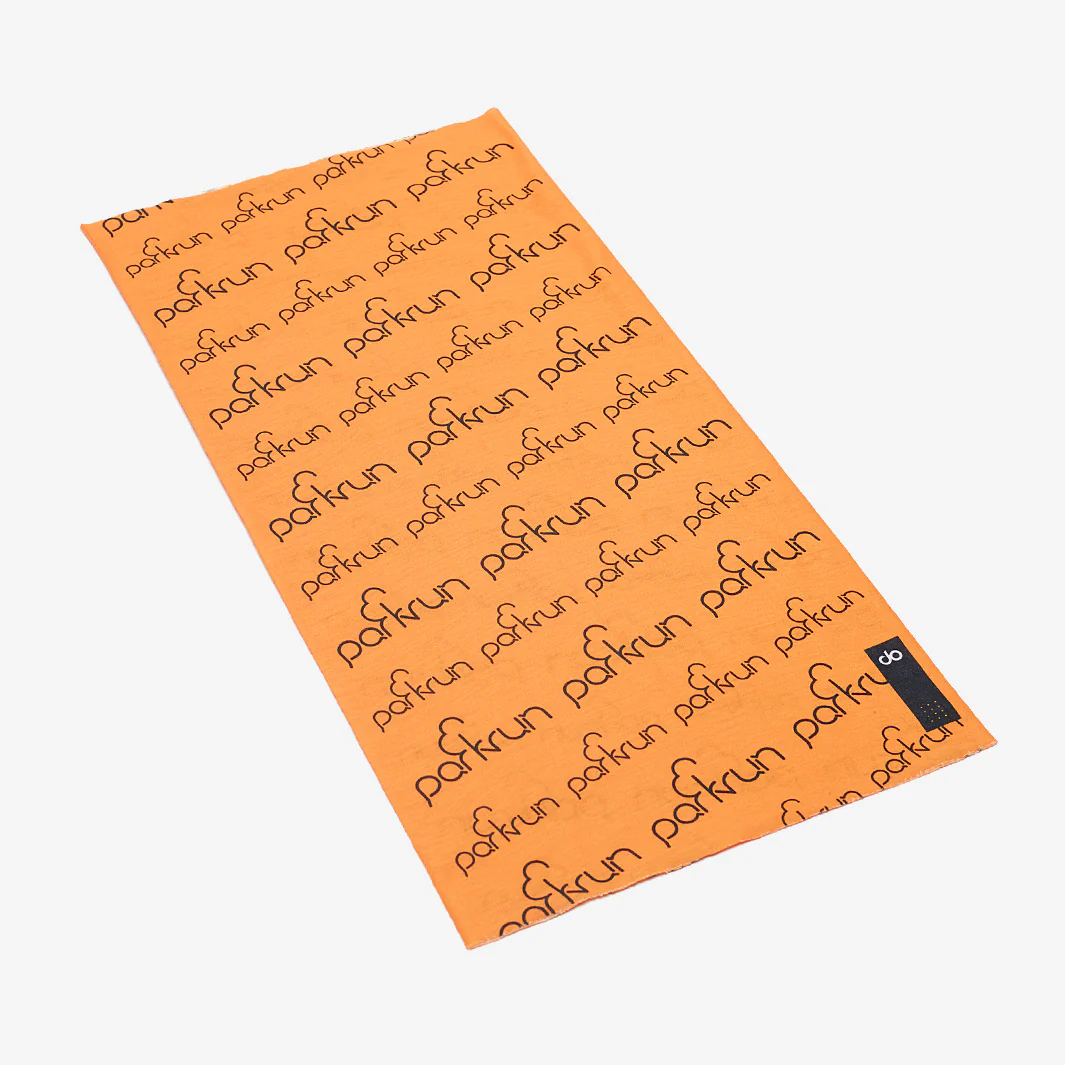 parkrun parkrun parkrun
parkrun parkrun parkrun
parkrun parkrun parkrun parkrun
parkrun parkrun parkrun
parkrun parkrun parkrun parkrun
parkrun parkrun parkrun
parkrun parkrun parkrun parkrun
parkrun parkrun parkrun
parkrun parkrun parkrun parkrun
parkrun parkrun parkrun
parkrun parkrun parkrun parkrun
parkrun parkrun parkru
parkrun